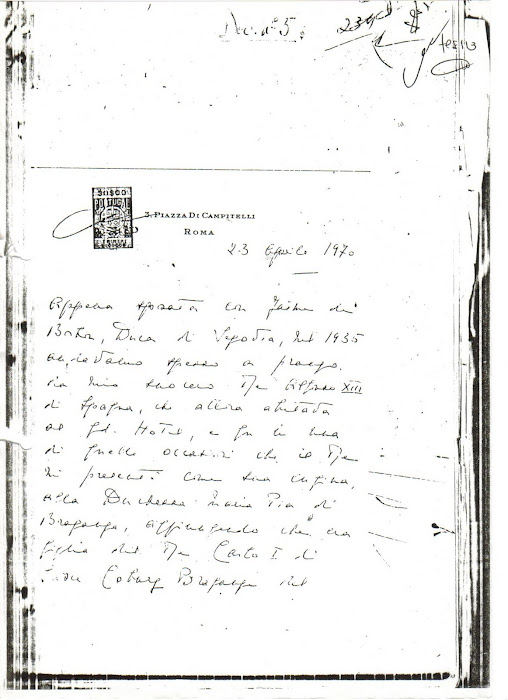 Doc. nº 5
3, PIAZZA DI CAMPITELLI
ROMA
PORTUGAL
23 Aprile 1970
Appena sposata con Jaime di
Borbon, Duca di Segovia, nel 1935
andavamo spesso a pranzo
da mio suocero il Re Alfonso XIII
di Spagna, che allora abitava
al Gd. Hotel, e fu in una
di quelle occasioni che il Re
mi presentò come sua cugina,
alla Duchessa Maria Pia di
Braganza, aggiungendo che era
figlia del Re Carlo I di
Coburg Braganza del